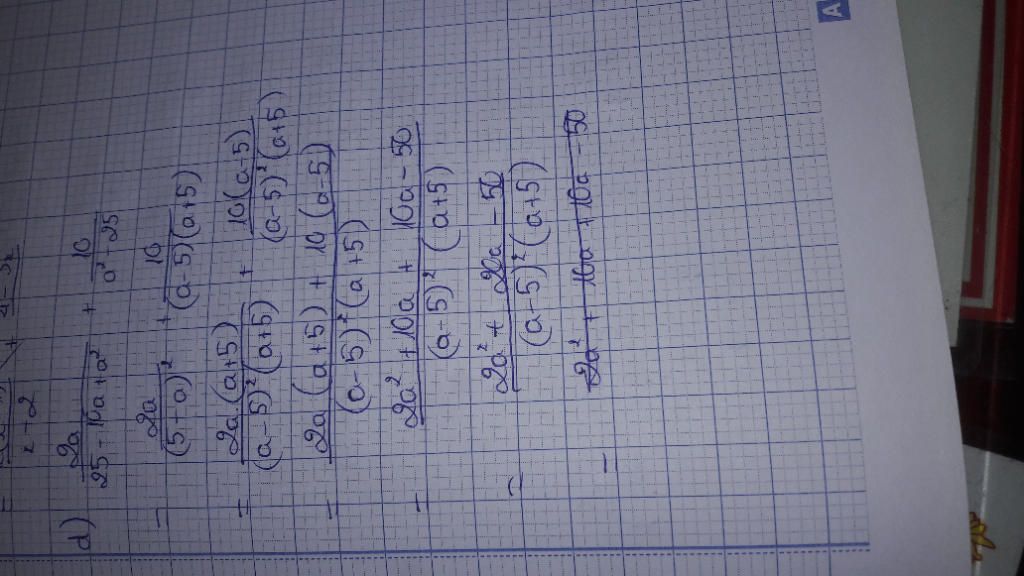 d) 2a/(25 - 10a + a²) + 10/(a² - 25)
= 2a/(5 - a)² + 10/((a - 5)(a + 5))
= 2a.(a + 5)/((a - 5)²(a + 5)) + 10(a - 5)/((a - 5)²(a + 5))
= (2a(a + 5) + 10(a - 5))/((a - 5)²(a + 5))
= (2a² + 10a + 10a - 50)/((a - 5)²(a + 5))
= (2a² + 20a - 50)/((a - 5)²(a + 5))
= 2a² + 10a + 10a - 50
A